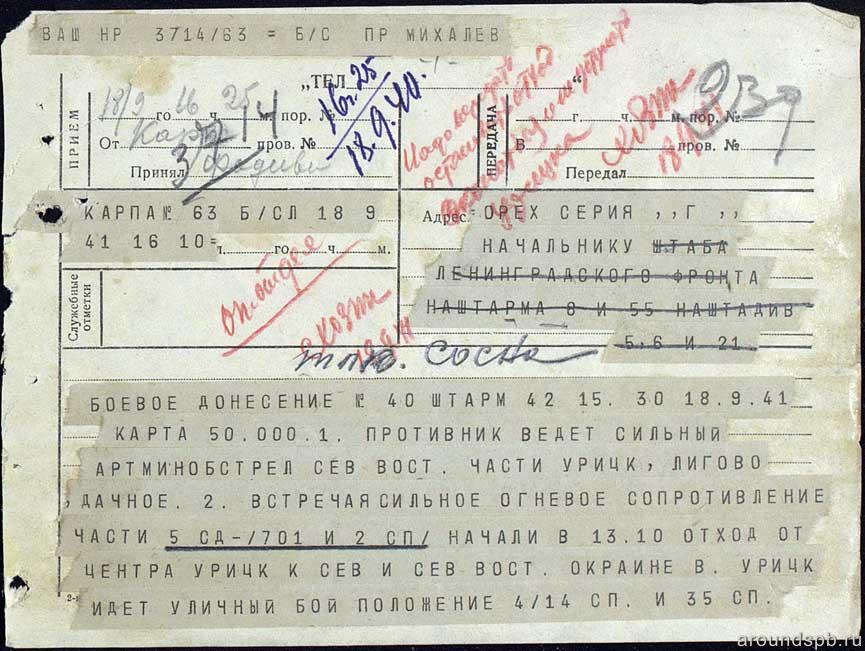 ВАШ НР 3714/63 = Б/С ПР МИХАЛЕВ
„ТЕЛ
ПРИЕМ
18/9 16 го 25 ч. м. пор. №
14
От Карпа пров. №
37
Принял
16.25
18.9.41.
ПЕРЕДАЧА
г. ч. м. пор. №
В пров. №
Передал
Хозэт
18/9
КАРПА № 63 Б/СЛ 18 9
41 16 10=
го ч. м.
Адрес ОРЕХ СЕРИЯ ,,Г ,,
НАЧАЛЬНИКУ ШТАБА
ЛЕНИНГРАДСКОГО ФРОНТА
НАШТАРМА 8 И 55 НАШТАДИВ
5,6 И 21
Служебные
отметки
Сосна
БОЕВОЕ ДОНЕСЕНИЕ № 40 ШТАРМ 42 15. 30 18.9.41
КАРТА 50.000.1. ПРОТИВНИК ВЕДЕТ СИЛЬНЫЙ
АРТМИНОБСТРЕЛ СЕВ ВОСТ. ЧАСТИ УРИЦК, ЛИГОВО
,ДАЧНОЕ. 2. ВСТРЕЧАЯСИЛЬНОЕ ОГНЕВОЕ СОПРОТИВЛЕНИЕ
ЧАСТИ 5 СД-/701 И 2 СП/ НАЧАЛИ В 13.10 ОТХОД ОТ
ЦЕНТРА УРИЦК К СЕВ И СЕВ ВОСТ. ОКРАИНЕ В. УРИЦК
ИДЕТ УЛИЧНЫЙ БОЙ ПОЛОЖЕНИЕ 4/14 СП. И 35 СП.
aroundspb.ru